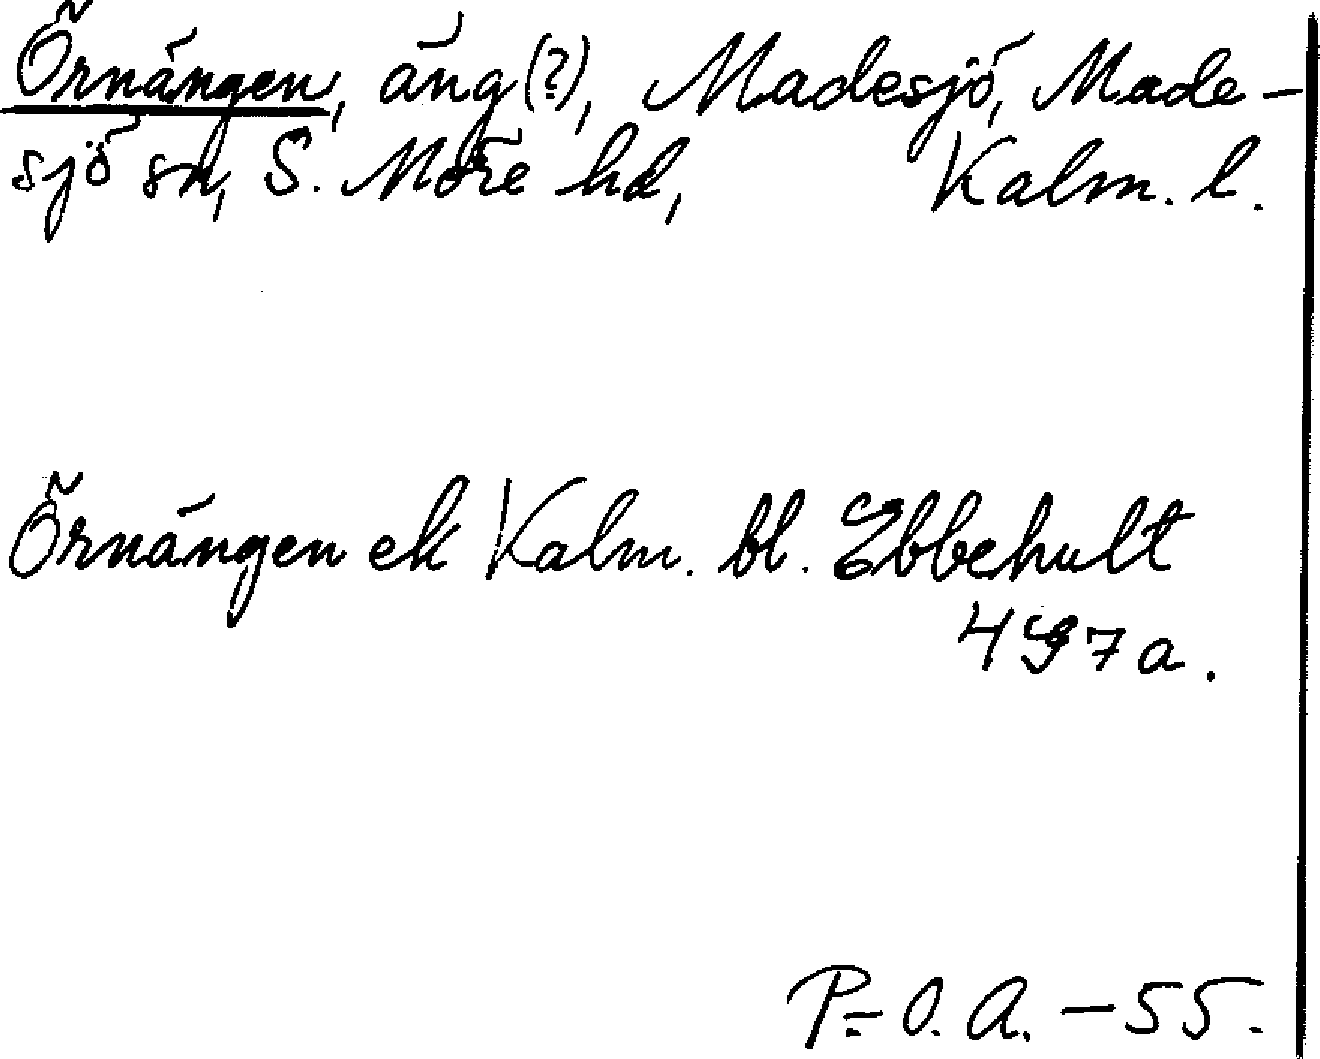 Örnängen, äng(?), Madesjö, Made-
sjö sn, S. Möre hd, Kalm. l.
Örnängen ek Kalm. bl. Ebbehult
497a.
P-O. A. -55.